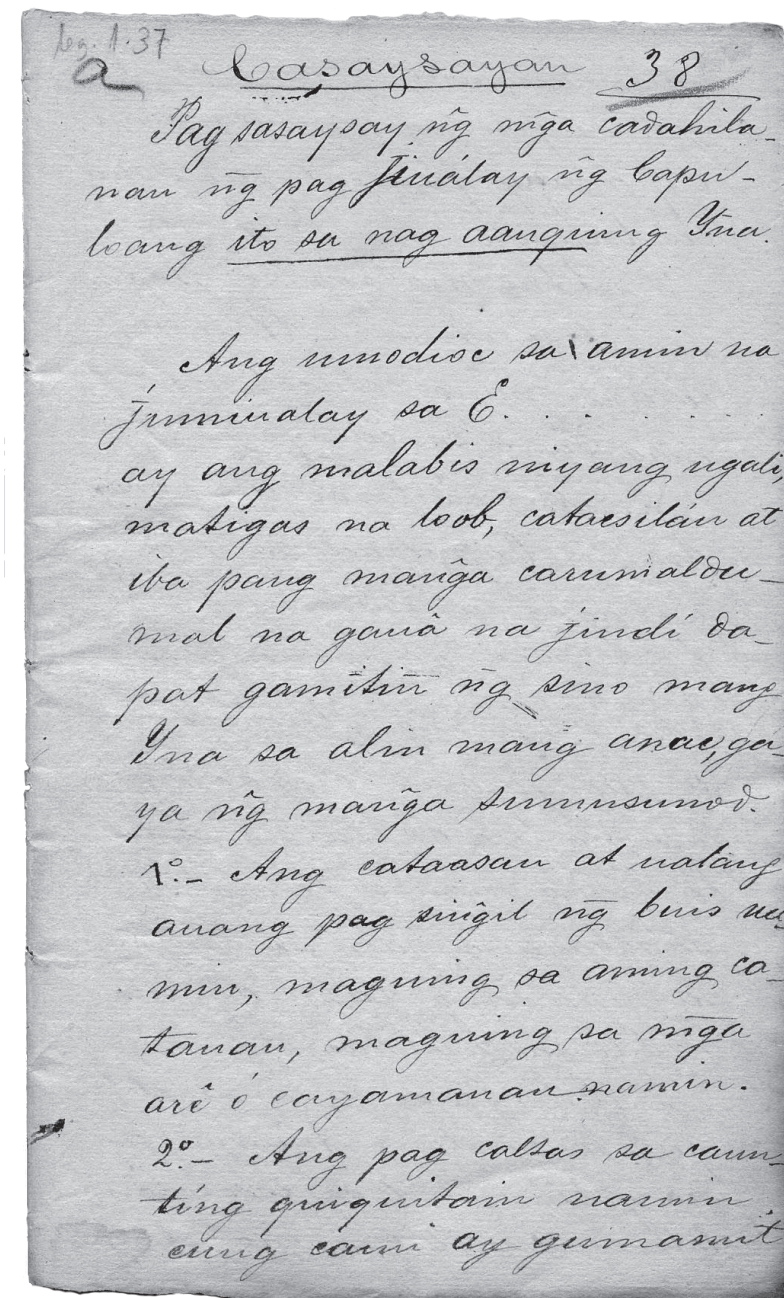 Leg. 1.37
a Casaysayan 38
Pag sasaysay n̄g m̄ga cadahila-
nan n̄g pag jiuálay n̄g Capu-
loang ito sa nag aanquing Yna.
Ang umodioc sa amin na
jumiualay sa E. . . . . .
ay ang malabis niyang ugali,
matigas na loob, catacsilán at
iba pang man̄ga carumaldu-
mal na gauâ na jindí da-
pat gamitin n̄g sino mang
Yna sa alin mang anac, ga-
ya n̄g man̄ga sumusunod.
1.º- Ang cataasan at ualang
auang pag sin̄gil n̄g buis na-
min, maguing sa aming ca-
tauan, maguing sa m̄ga
arê ó cayamanan namin.
2.º- Ang pag caltas sa caun-
ting quiquitain namin
cung cami ay gumamit